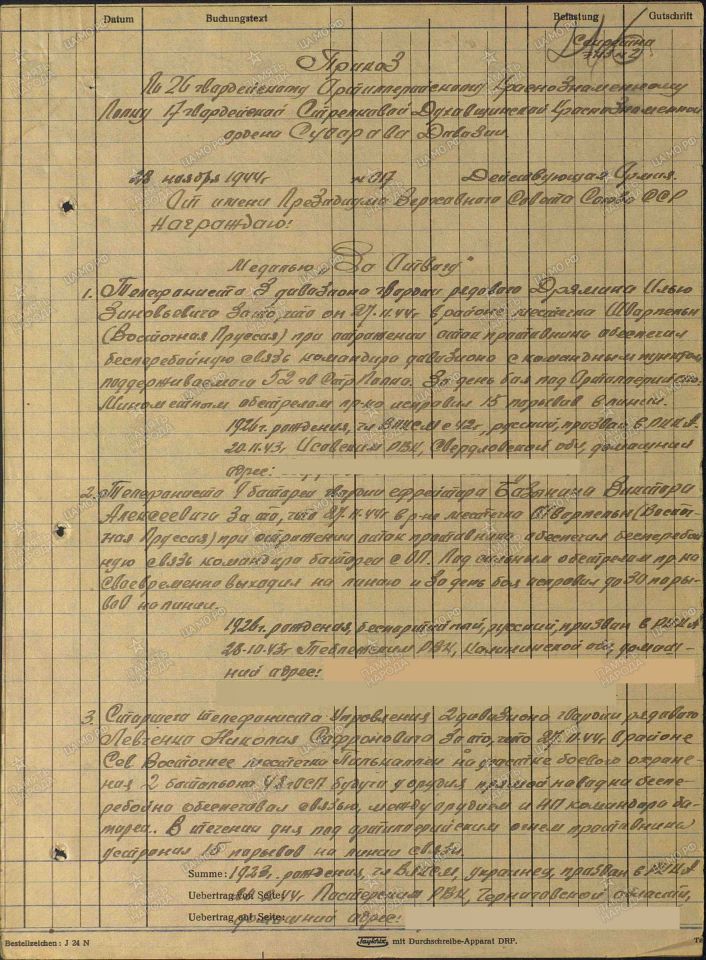 Datum Buchungstext Belastung Gutschrift
Приказ
По 26 гвардейскому Артиллерийскому Краснознаменному
Полку 17 гвардейской Стрелковой Духавщинской Краснознаменной
ордена Суварава Дивизии.
28 ноября 1944г №017 Действующая Армия.
От имени Президиума Верховного Совета Союза ССР
Награждаю:
Медалью "За Отвагу"
1. Телефониста 3 дивизиона гвардии рядового Дрямина Илью
Зиновьевича За то, что он 27.11.44г в районе местечка Шварпельн
(Восточная Пруссия) при отражении атак противника обеспечил
бесперебойную связь командира дивизиона с командным пунктом
поддерживаемого 52 гв Стр Полка. За день боя под Артиллерийско-
Минометным обстрелом пр-ка исправил 15 порывов в линии.
1926г. рождения, чл ВЛКСМ с 42г, русский, призван в РККА
20.11.43г Исовским РВК, Свердловской обл, домашний
адрес:
2. Телефониста 4 батареи гвардии ефрейтора Базынина Виктора
Алексеевича За то, что 27.11.44г в р-не местечка Шварпельн (Восточ-
ная Пруссия) при отражении атак противника обеспечил бесперебой-
ную связь командира батареи с ОП. Под сильным обстрелом пр-ка
своевременно выходил на линию и За день боя исправил до 30 поры-
вов на линии.
1926г. рождения, беспартийный, русский, призван в РККА
28.10.43г Теблешским РВК, Калининской обл, домаш-
ний адрес:
3. Старшего телефониста Управления 2 дивизиона гвардии рядового
Левченко Николая Сафроновича За то, что 27.11.44г в районе
Сев Восточнее местечка на участке боевого охране-
ния 2 батальона 48 гвСП будучи у орудия прямой наводки беспе-
ребойно обеспечивал связью, между орудием и НП командира ба-
тареи. В течении дня под артиллерийским огнем противника
устранил 15 порывов на линии связи.
Summe: рождения, чл ВЛКСМ, украинец, призван в РККА
Uebertrag von Seite: 44г РВК, Черниговской области,
Uebertrag auf Seite: домашний адрес:
Bestellzeichen: J 24 N mit Durchschreibe-Apparat DRP.